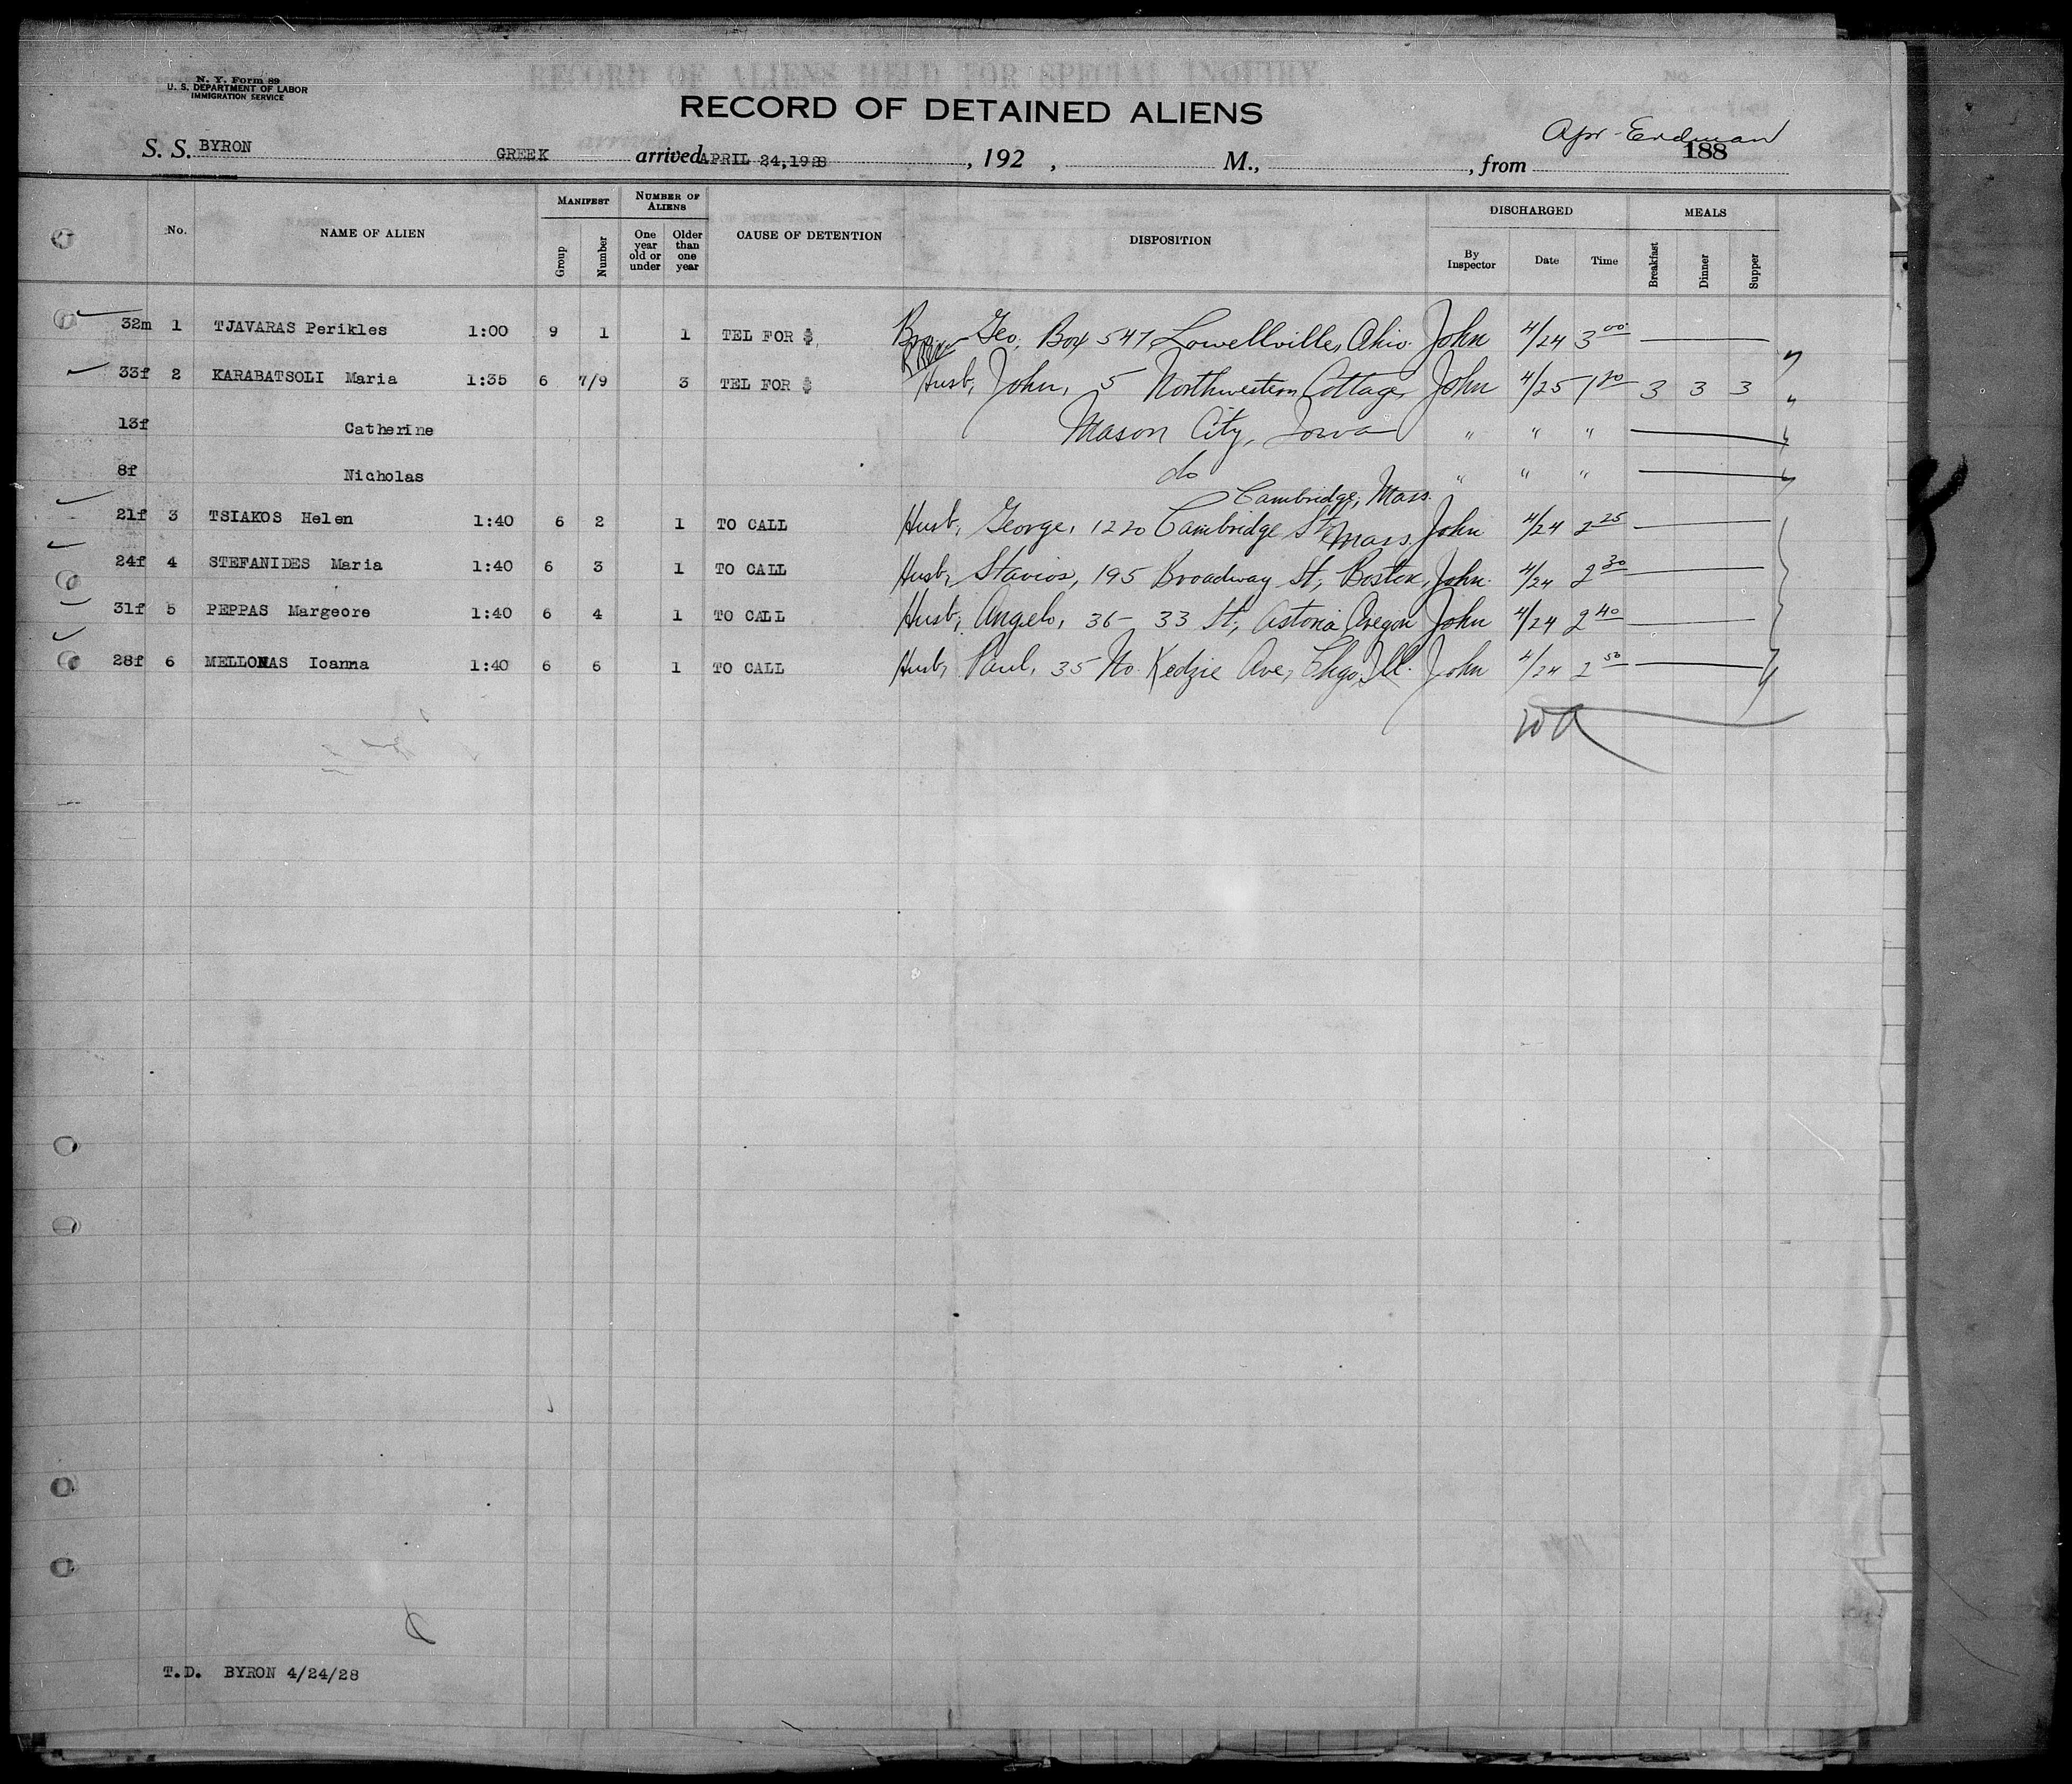 N. Y. Form 89
U. S. DEPARTMENT OF LABOR
IMMIGRATION SERVICE
RECORD OF ALIENS HELD FOR SPECIAL INQUIRY.
RECORD OF DETAINED ALIENS
Apr-Erdman
S. S. BYRON GREEK arrived APRIL 24, 1928, 192 , M., , from 188
No. NAME OF ALIEN MANIFEST Group Number NUMBER OF ALIENS One year old or under Older than one year CAUSE OF DETENTION DISPOSITION DISCHARGED By Inspector Date Time MEALS Breakfast Dinner Supper
32m 1 TJAVARAS Perikles 1:00 9 1 1 TEL FOR $ Bro. Geo, Box 547, Lowellville, Ohio. John 4/24 3 00
33f 2 KARABATSOLI Maria 1:35 6 7/9 3 TEL FOR $ Husb, John, 5 Northwestern Cottage, John 4/25 1 20 3 3 3 "
13f Catherine Mason City, Iowa " " " "
8f Nicholas do " " " "
Cambridge, Mass.
21f 3 TSIAKOS Helen 1:40 6 2 1 TO CALL Husb, George, 1220 Cambridge St, John 4/24 2 25
Mass.
24f 4 STEFANIDES Maria 1:40 6 3 1 TO CALL Husb, Stavios, 195 Broadway St, Boston, John. 4/24 2 30
31f 5 PEPPAS Margeore 1:40 6 4 1 TO CALL Husb, Angelo, 36- 33 St, Astoria, Oregon John 4/24 2 40
28f 6 MELLONAS Ioanna 1:40 6 6 1 TO CALL Husb, Paul, 35 No. Kedzie Ave, Chgo, Ill. John 4/24 2 50
T.D. BYRON 4/24/28